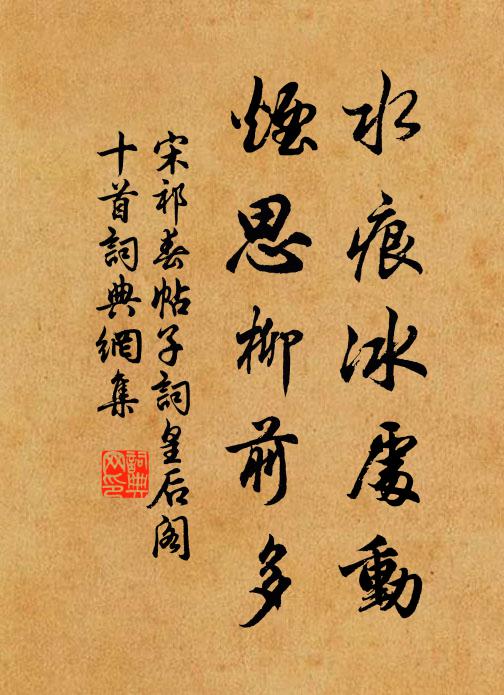 水痕冰處動
煙思柳前多
宋祁春帖子詞皇后阁
十首詞典網集
詞典
网印